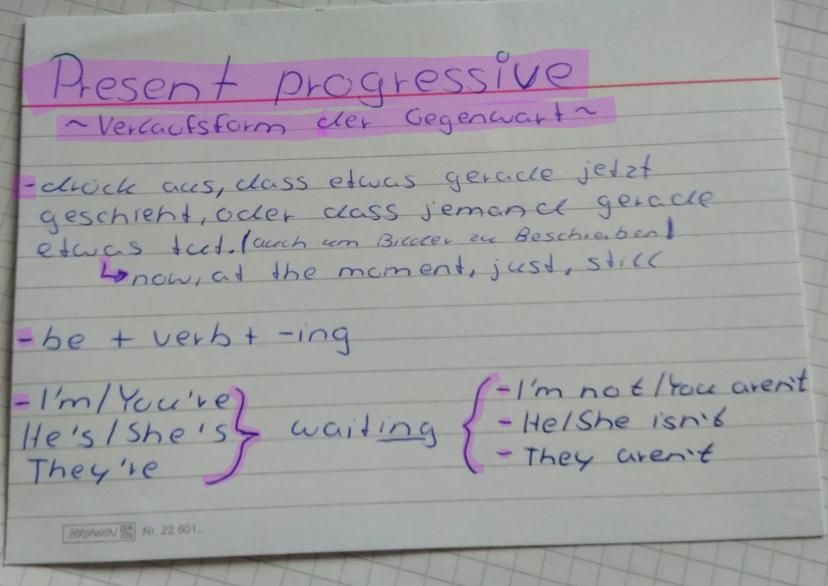 Present progressive
~ Verlaufsform der Gegenwart ~
- drück aus, dass etwas gerade jetzt
geschieht, oder dass jemand gerade
etwas tut. (auch um Bilder zu Beschreiben)
↳ now, at the moment, just, still
- be + verb + -ing
- I'm / You're
He's / She's
They're
waiting
- I'm not / You aren't
- He/She isn't
- They aren't
BRUNNEN Nr. 22 601..